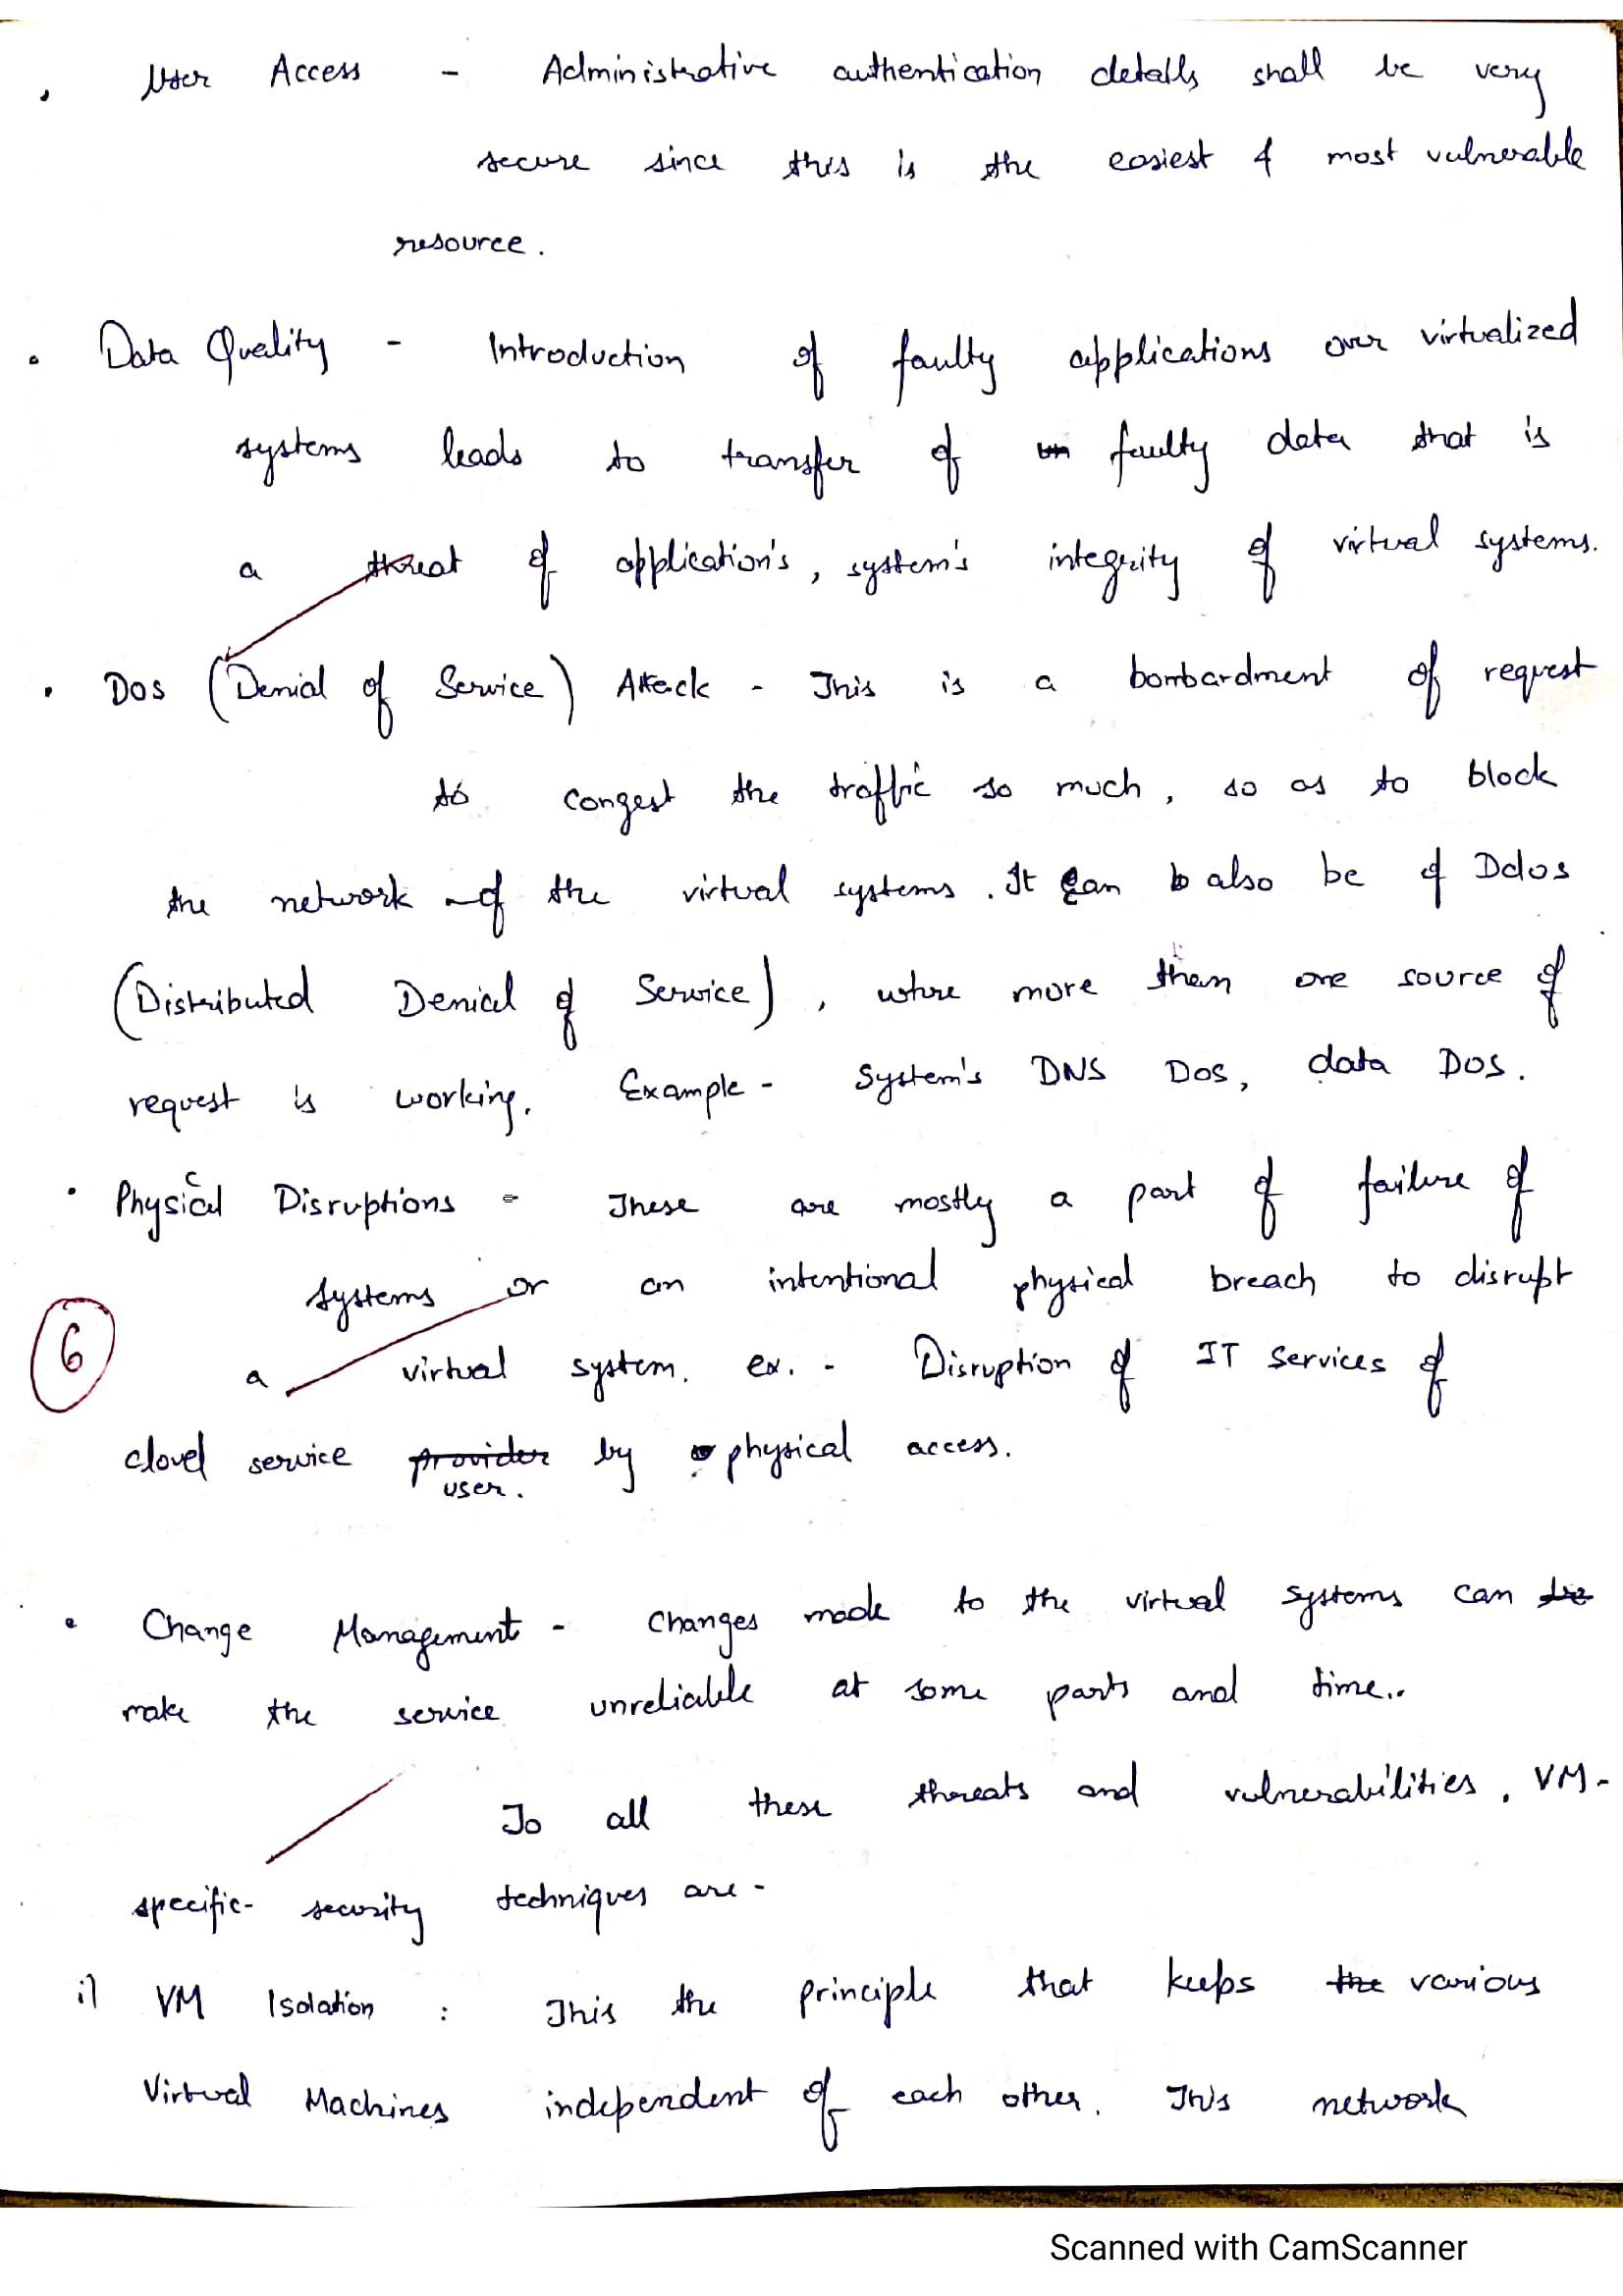 . User Access - Administrative authentication details shall be very
secure since this is the easiest & most vulnerable
resource.
. Data Quality - Introduction of faulty applications over virtualized
systems leads to transfer of faulty data that is
a threat of application's, system's integrity of virtual systems.
. DOS (Denial of Service) Attack - This is a bombardment of request
to congest the traffic so much, so as to block
the network of the virtual systems. It can b also be of Ddos
(Distributed Denial of Service), where more than one source of
request is working. Example - System's DNS DOS, data DOS.
. Physical Disruptions - These are mostly a part of failure of
systems or an intentional physical breach to disrupt
6
a virtual system. ex. - Disruption of IT services of
cloud service provider by physical access.
user.
. Change Management - Changes made to the virtual systems can
make the service unreliable at some parts and time..
To all these threats and vulnerabilities, VM-
specific- security techniques are -
i) VM Isolation : This the principle that keeps the various
Virtual Machines independent of each other. This network
Scanned with CamScanner